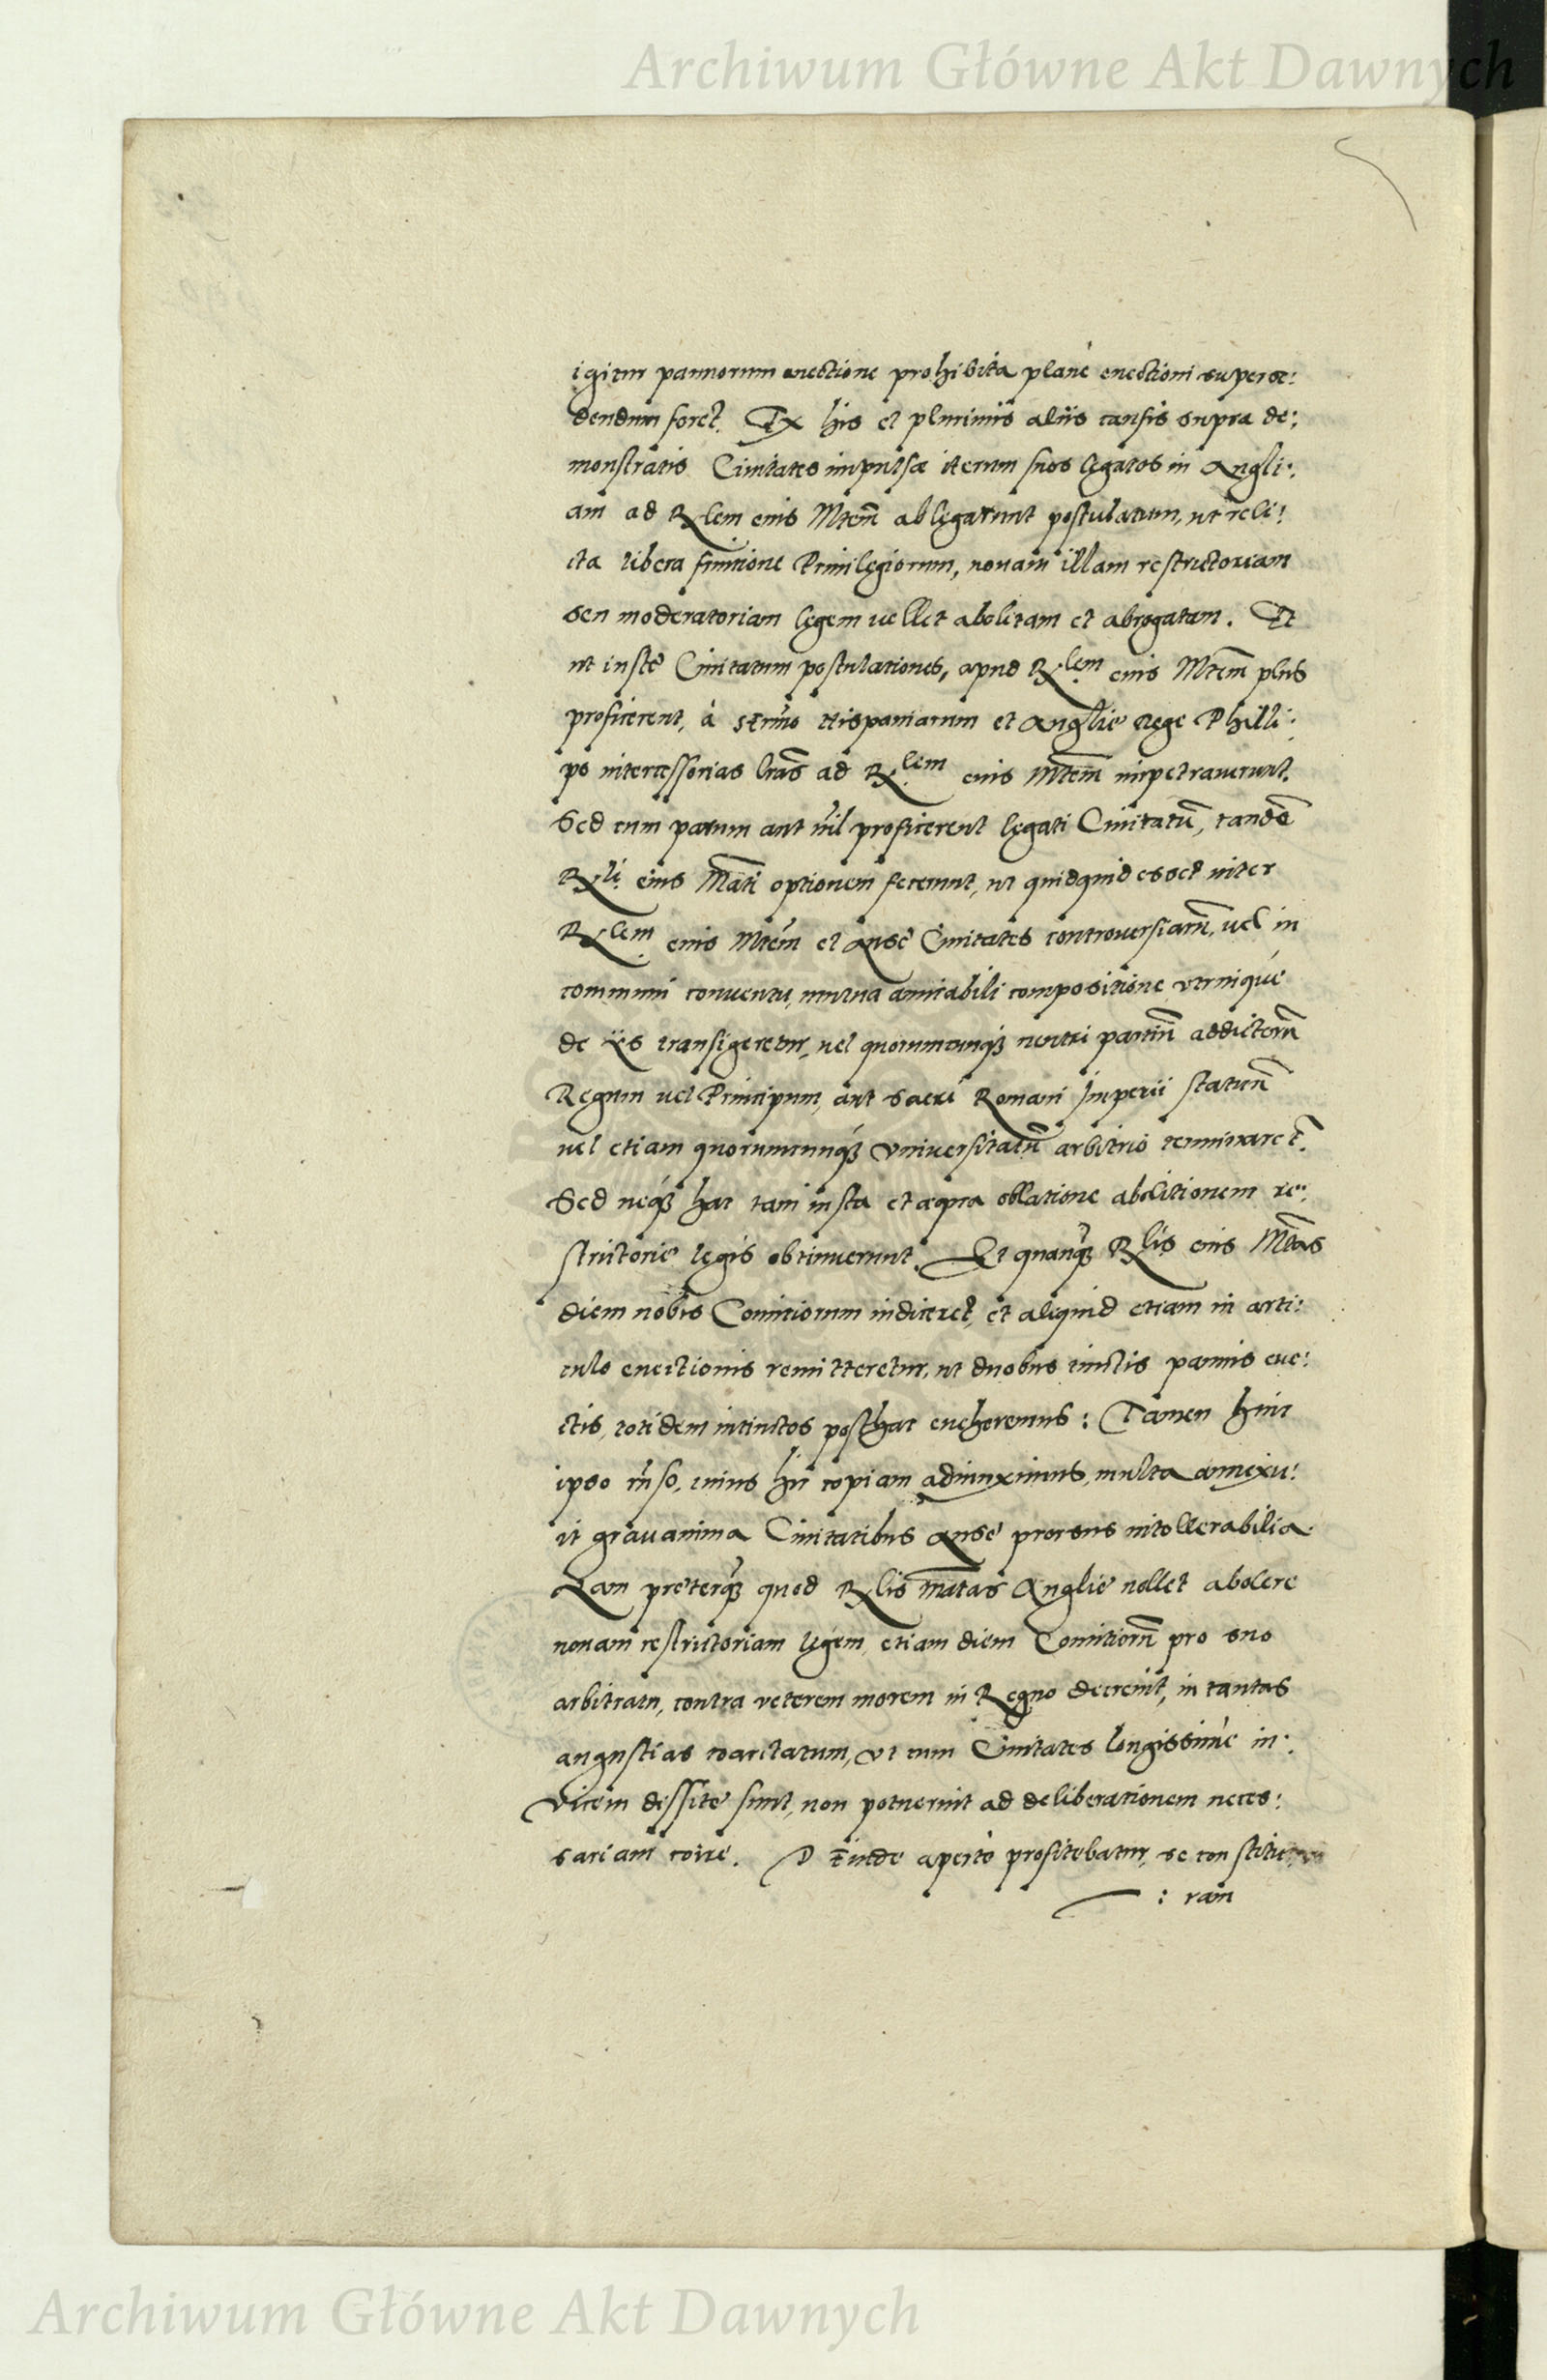 Archiwum Główne Akt Dawnych
igitur pannorum euectione prohibita planè euectioni superse:
dendum foret. Ex his et plurimis aliis causis supra de:
monstratis Ciuitates impulsæ iterum suos legatos in Angli:
am ad Rlem eius Mtem ablegarunt postulatum, ut reli:
cta libera fruitione Priuilegiorum, nouam illam restrictoriam
seu moderatoriam legem uellet abolitam et abrogatam. Et
ut iustę Ciuitatum postulationes, apud Rlem eius Mtem plus
proficerent, à Sermo Hispaniarum et Anglie Rege Philli:
po intercessorias lras ad Rlem eius Mtem impetrauerunt.
Sed cum parum aut nil proficerent legati Ciuitatū, tandē
Rli eius Mati optionem fecerunt, ut quidquid esset inter
Rlem eius Mtem et Ansę Ciuitates controuersiarū, uel in
communi conuentu, mutua amicabili compositione utrinque
de iis transigeretur, uel quorumcunq neutri partiū addictorū
Regum uel Principum, aut Sacri Romani Imperii statuū
uel etiam quorumcunq Vniuersitatū arbitrio terminaret.
Sed neq hac tam iusta et æqua oblatione abolitionem re:
strictorię legis obtinuerunt. Et quanq Rlis eius Mtas
diem nobis Comitiorum indiceret, et aliquid etiam in arti:
culo euectionis remitteretur, ut duobus tinctis pannis eue:
ctis, totidem intinctos posthac eueheremus: Tamen huic
ipso rñso, cuius hic copiam adiunximus, multa annexu:
it grauamina Ciuitatibus Ansę prorsus intollerabilia
Nam pręterq quod Rlis Matas Anglię nollet abolere
nouam restrictoriam legem, etiam diem Comitiorū pro suo
arbitratu, contra veterem morem in Regno decreuit, in tantas
angustias coarctatum, vt cum Ciuitates longissimè in:
vicem dissitę sunt, non potuerint ad deliberationem neces:
sariam coire. Deinde apertò profitebatur, se constitu
: ram
Archiwum Główne Akt Dawnych